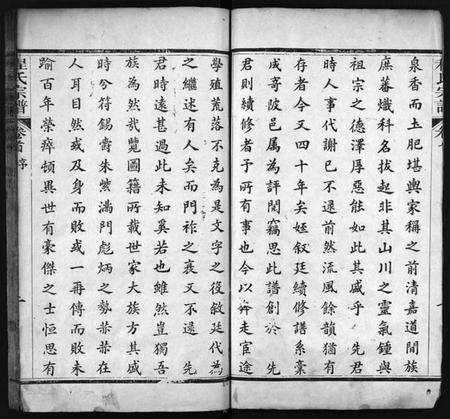 泉香而土肥堪輿家稱之前清嘉道間族
庶蕃熾科名拔起非其山川之靈氣鍾與
祖宗之德澤厚惡能如此其盛乎 先君
時人事代謝已不逮前然流風餘韻猶有
存者今又四十年矣姪叙廷續修譜系稾
成寄陂邑屬為評閱竊思此譜創於 先
君則續修者予所有事也今以奔走宦途
學殖荒落不克為是文字之役敘廷代為
之繼述有人矣而門祚之衰又不逮 先
君時遠甚過此未知奚若也雖然豈獨吾
族為然哉覽圖籍所載世家大族方其盛
時兮符錫爵朱紫滿門彪炳之勢恭恭在
人耳目然或及身而敗或一再傳而敗未
踰百年榮瘁頓異世有豪傑之士恒思有
程氏宗譜 卷首 序
程氏宗譜 卷首